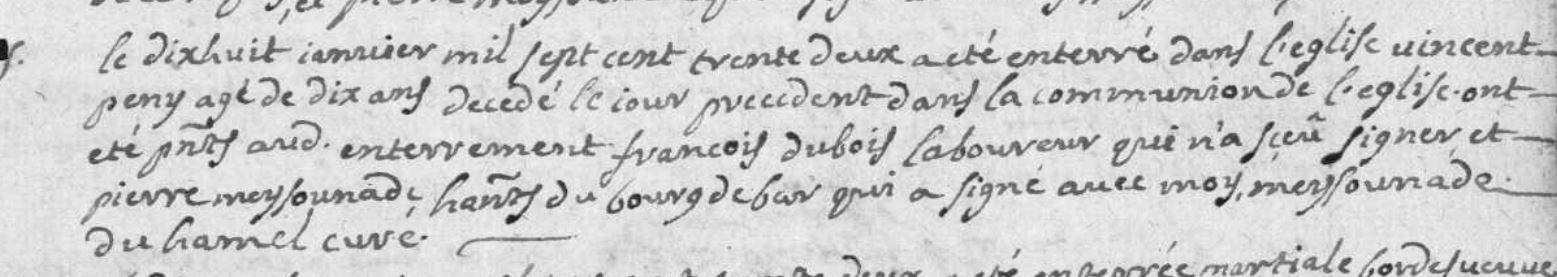 le dixhuit ianuier mil sept cent trente deux a eté enterré dans l'eglise uincent
peny agé de dix ans decedé le iour precedent dans la communion de l'eglise. ont
eté pñts aud. enterrement françois dubois laboureur qui n'a sçeû signer, et
pierre meysounade, hañts du bourg de bar qui a signé auec moy, meysounade.
du hamel curé.
deux a eté enterrée martiale bordes ueuue